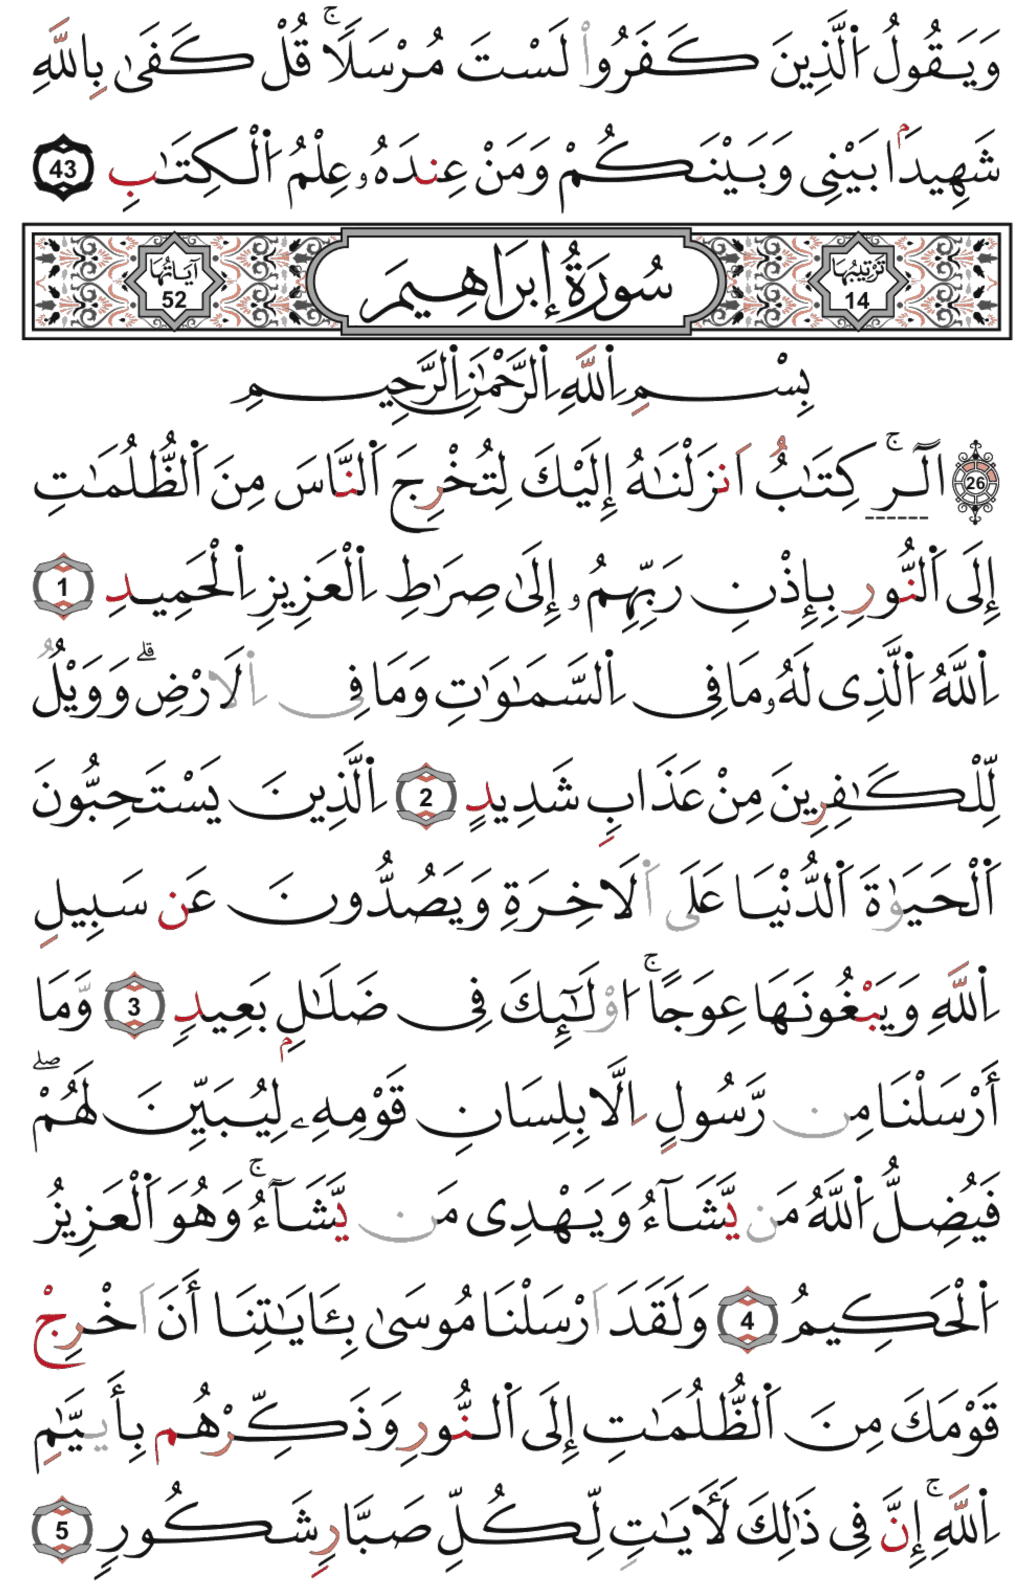 وَيَقُولُ اُ۬لَّذِينَ كَفَرُواْ لَسْتَ مُرْسَلاٗۖ قُلْ كَف۪ىٰ بِاللَّهِ
شَهِيدَاۢ بَيْنِي وَبَيْنَكُمْ وَمَنْ عِندَهُۥ عِلْمُ اُ۬لْكِتَٰبِ 43
تَرْتِيبُهَا 14 سُورَةُ إِبرَاهِيمَ آيَاتُهَا 52
بِسْمِ اِ۬للَّهِ اِ۬لرَّحْمَٰنِ اِ۬لرَّحِيمِ
26 أَلَٓرۚ كِتَٰبٌ اَنزَلْنَٰهُ إِلَيْكَ لِتُخْرِجَ اَ۬لنَّاسَ مِنَ اَ۬لظُّلُمَٰتِ
إِلَى اَ۬لنُّورِ بِإِذْنِ رَبِّهِمُۥ إِلَىٰ صِرَٰطِ اِ۬لْعَزِيزِ اِ۬لْحَمِيدِ 1
اِ۬للَّهُ اُ۬لَّذِى لَهُۥ مَا فِى اِ۬لسَّمَٰوَٰتِ وَمَا فِى اِ۬لَارْضِۗ وَوَيْلٌ
لِّلْكَٰفِرِينَ مِنْ عَذَابٍ شَدِيدٍ 2 اِ۬لَّذِينَ يَسْتَحِبُّونَ
اَ۬لْحَيَوٰةَ اَ۬لدُّنْيَا عَلَى اَ۬لَاخِرَةِ وَيَصُدُّونَ عَن سَبِيلِ
اِ۬للَّهِ وَيَبْغُونَهَا عِوَجاًۚ اُوْلَٰٓئِكَ فِى ضَلَٰلِۢ بَعِيدٍ 3 وَمَا
أَرْسَلْنَا مِن رَّسُولٍ اِلَّا بِلِسَانِ قَوْمِهِۦ لِيُبَيِّنَ لَهُمْۖ
فَيُضِلُّ اُ۬للَّهُ مَن يَّشَآءُ وَيَهْدِى مَن يَّشَآءُۚ وَهُوَ اَ۬لْعَزِيزُ
اُ۬لْحَكِيمُ 4 وَلَقَدَ اَرْسَلْنَا مُوسَىٰ بِـَٔايَٰتِنَا أَنَ اَخْرِجْ
قَوْمَكَ مِنَ اَ۬لظُّلُمَٰتِ إِلَى اَ۬لنُّورِ وَذَكِّرْهُم بِأَيَّيٰمِ
اِ۬للَّهِۚ إِنَّ فِى ذَٰلِكَ لَأٓيَٰتٍ لِّكُلِّ صَبَّارٍ شَكُورٍ 5